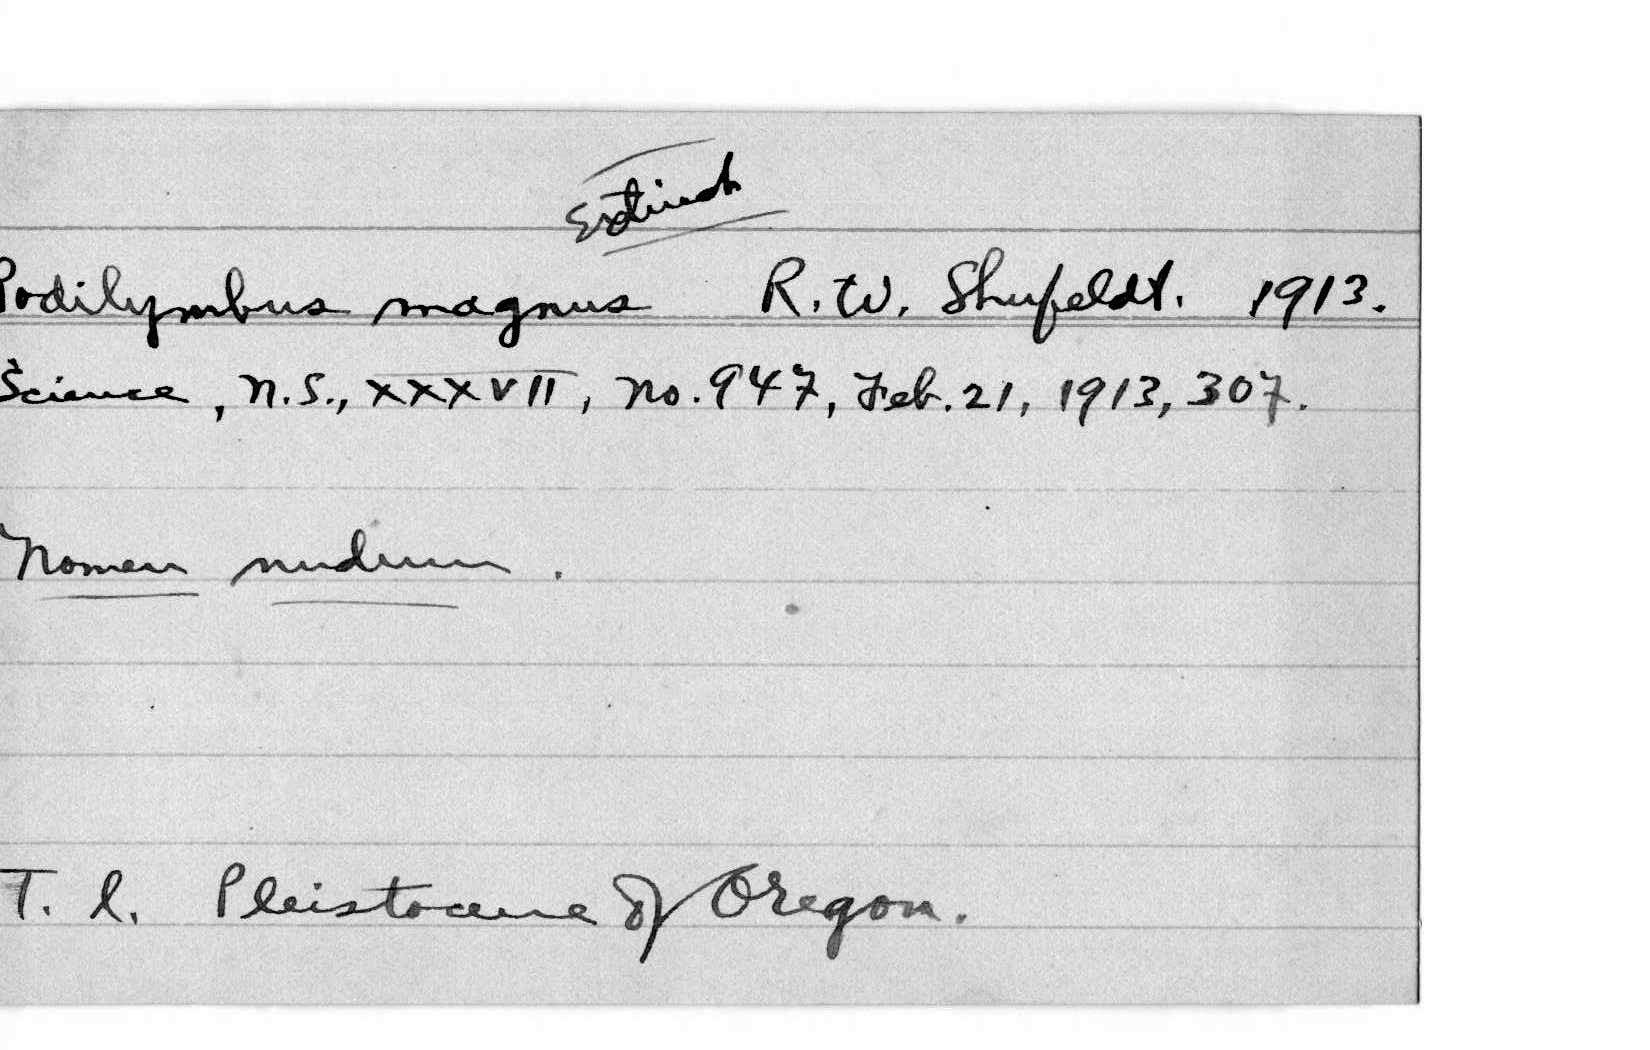 Extinct
Podilymbus magnus R. W. Shufeldt. 1913.
Science, N.S., XXXVII, No. 947, Feb. 21, 1913, 307.
Nomen nudum.
T. l. Pleistocene of Oregon.